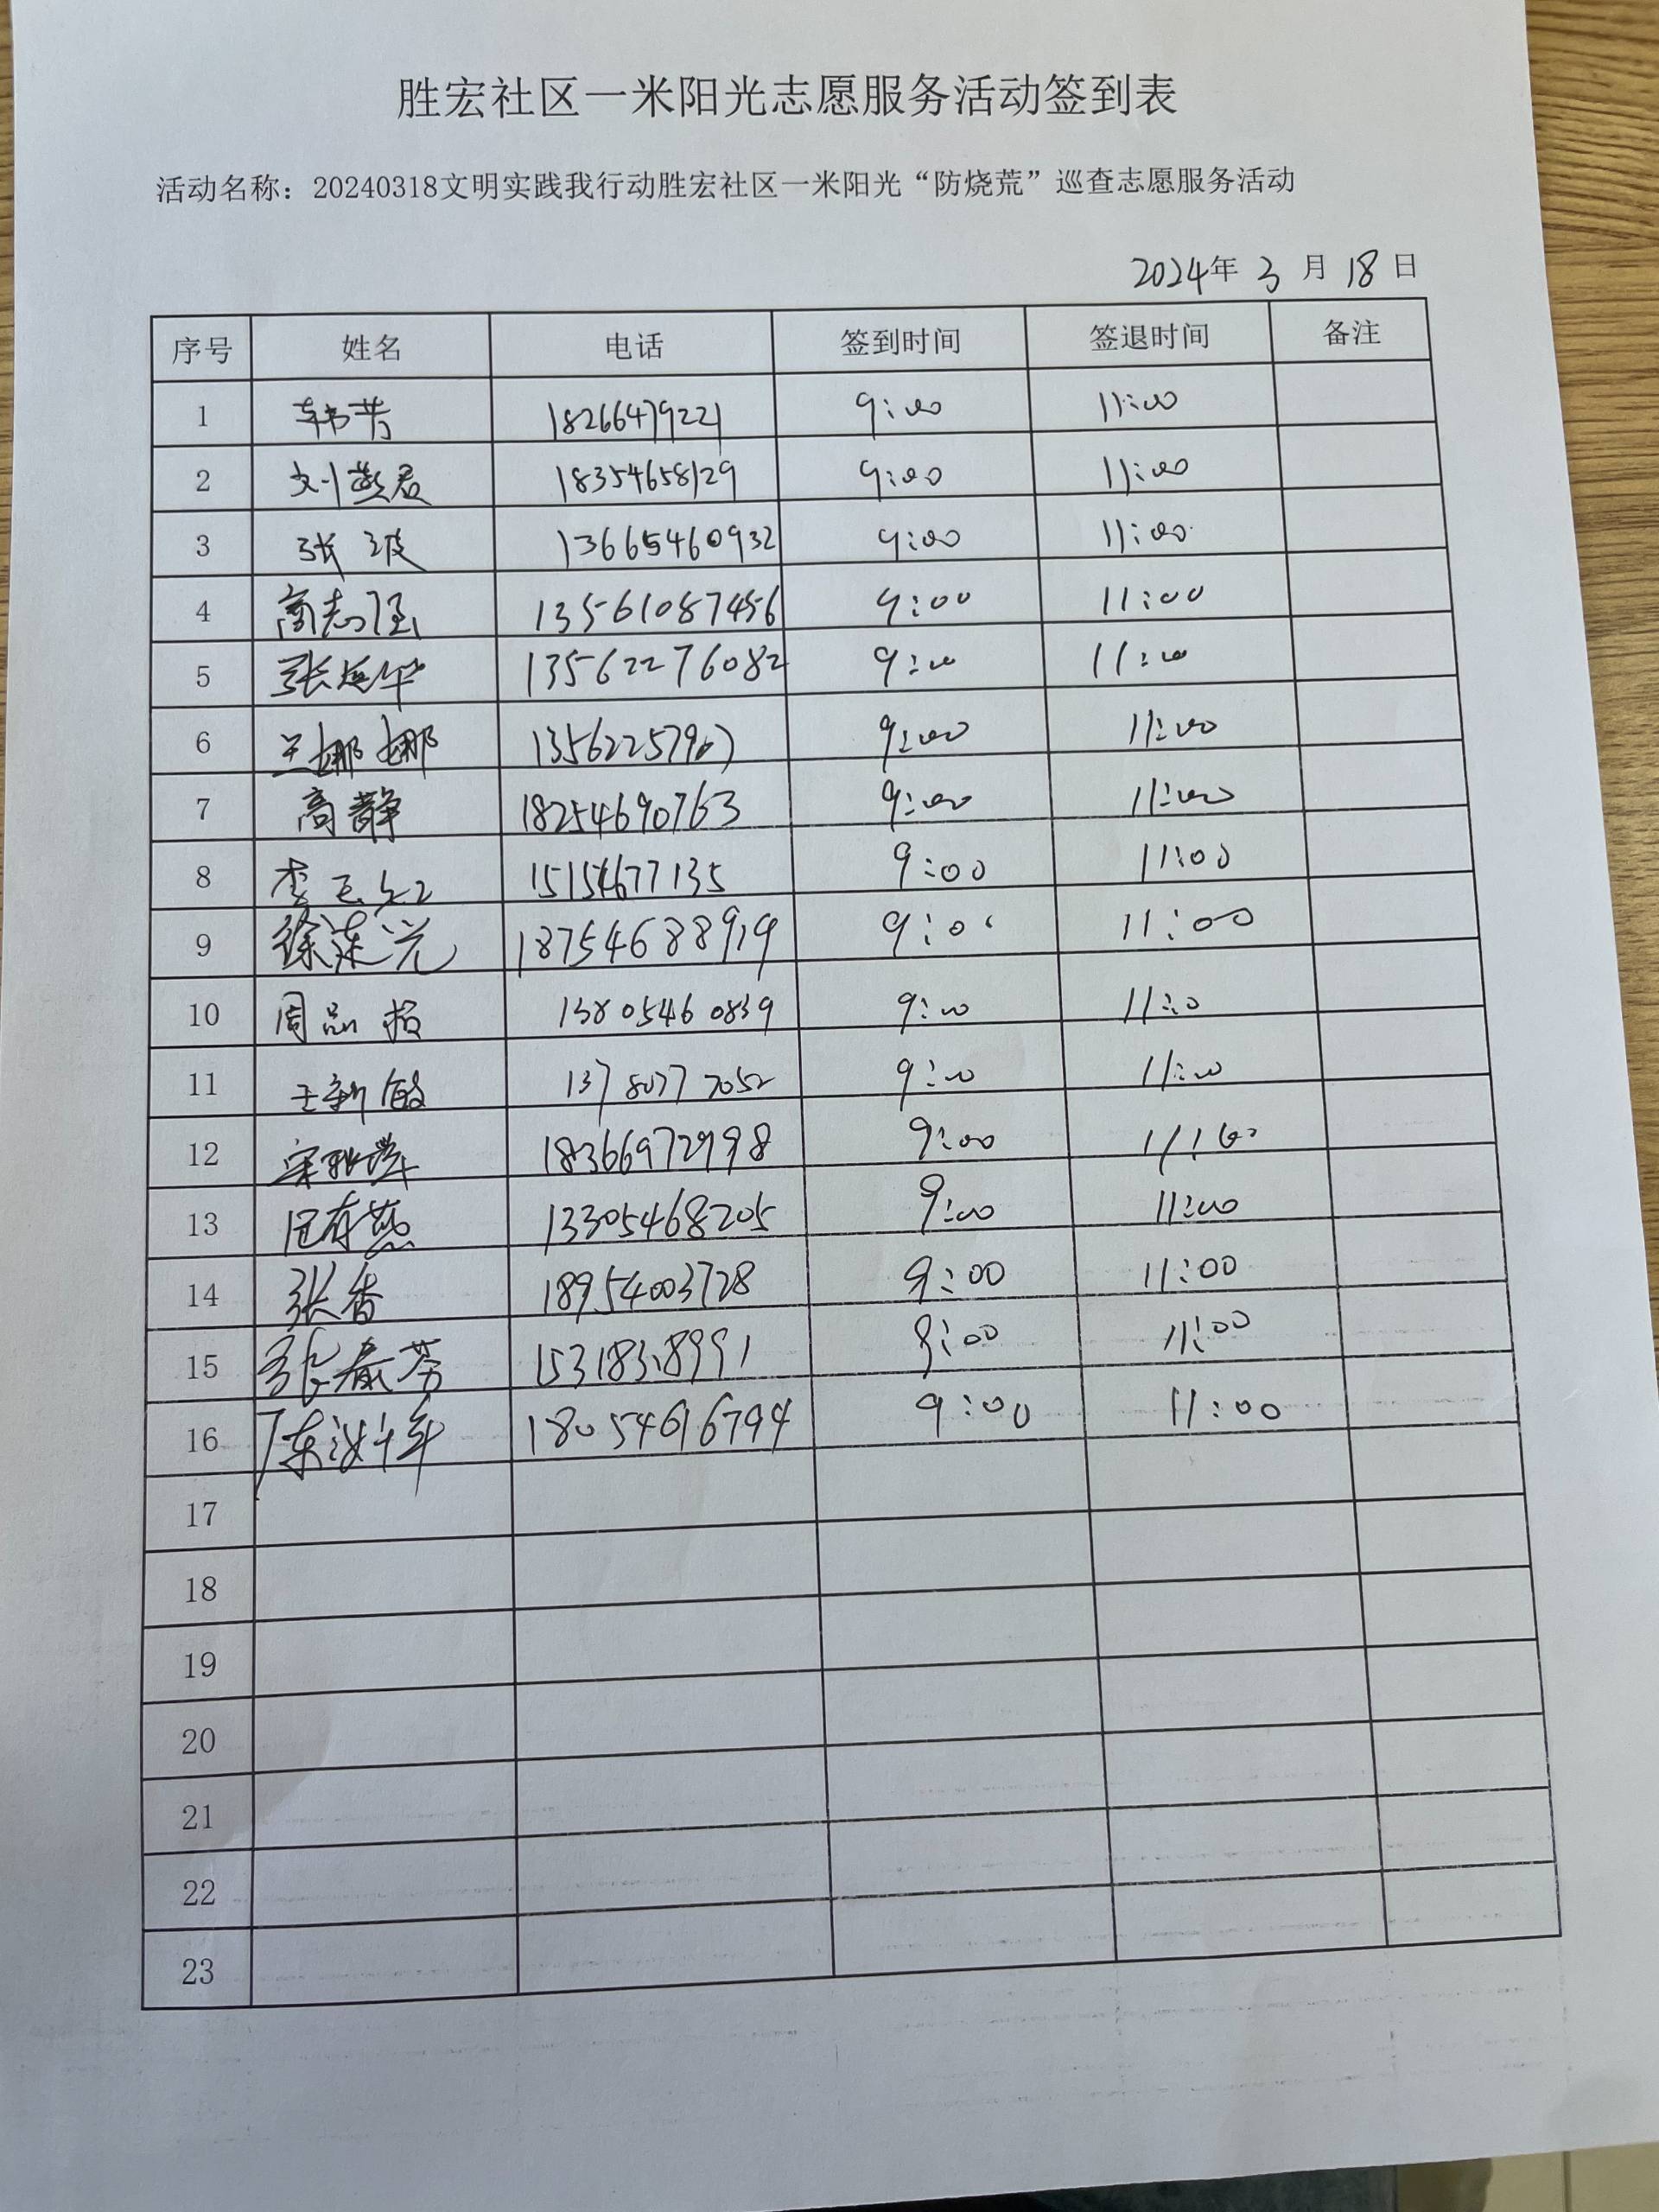 胜宏社区一米阳光志愿服务活动签到表
活动名称：20240318文明实践我行动胜宏社区一米阳光“防烧荒”巡查志愿服务活动
2024年 3 月 18 日
序号 姓名 电话 签到时间 签退时间 备注
1 韩芳 18266479221 9:00 11:00
2 刘燕君 18354658129 9:00 11:00
3 张波 13665460932 9:00 11:00
4 13561087456 9:00 11:00
5 13562276082 9:00 11:00
6 兰娜娜 13562257907 9:00 11:00
7 高静 18254690763 9:00 11:00
8 15154677135 9:00 11:00
9 徐莲光 18754688919 9:00 11:00
10 13805460839 9:00 11:00
11 13780777052 9:00 11:00
12 18366972998 9:00 11:00
13 13305468205 9:00 11:00
14 张香 18954003728 9:00 11:00
15 张春芳 9:00 11:00
16 18054616794 9:00 11:00
17
18
19
20
21
22
23